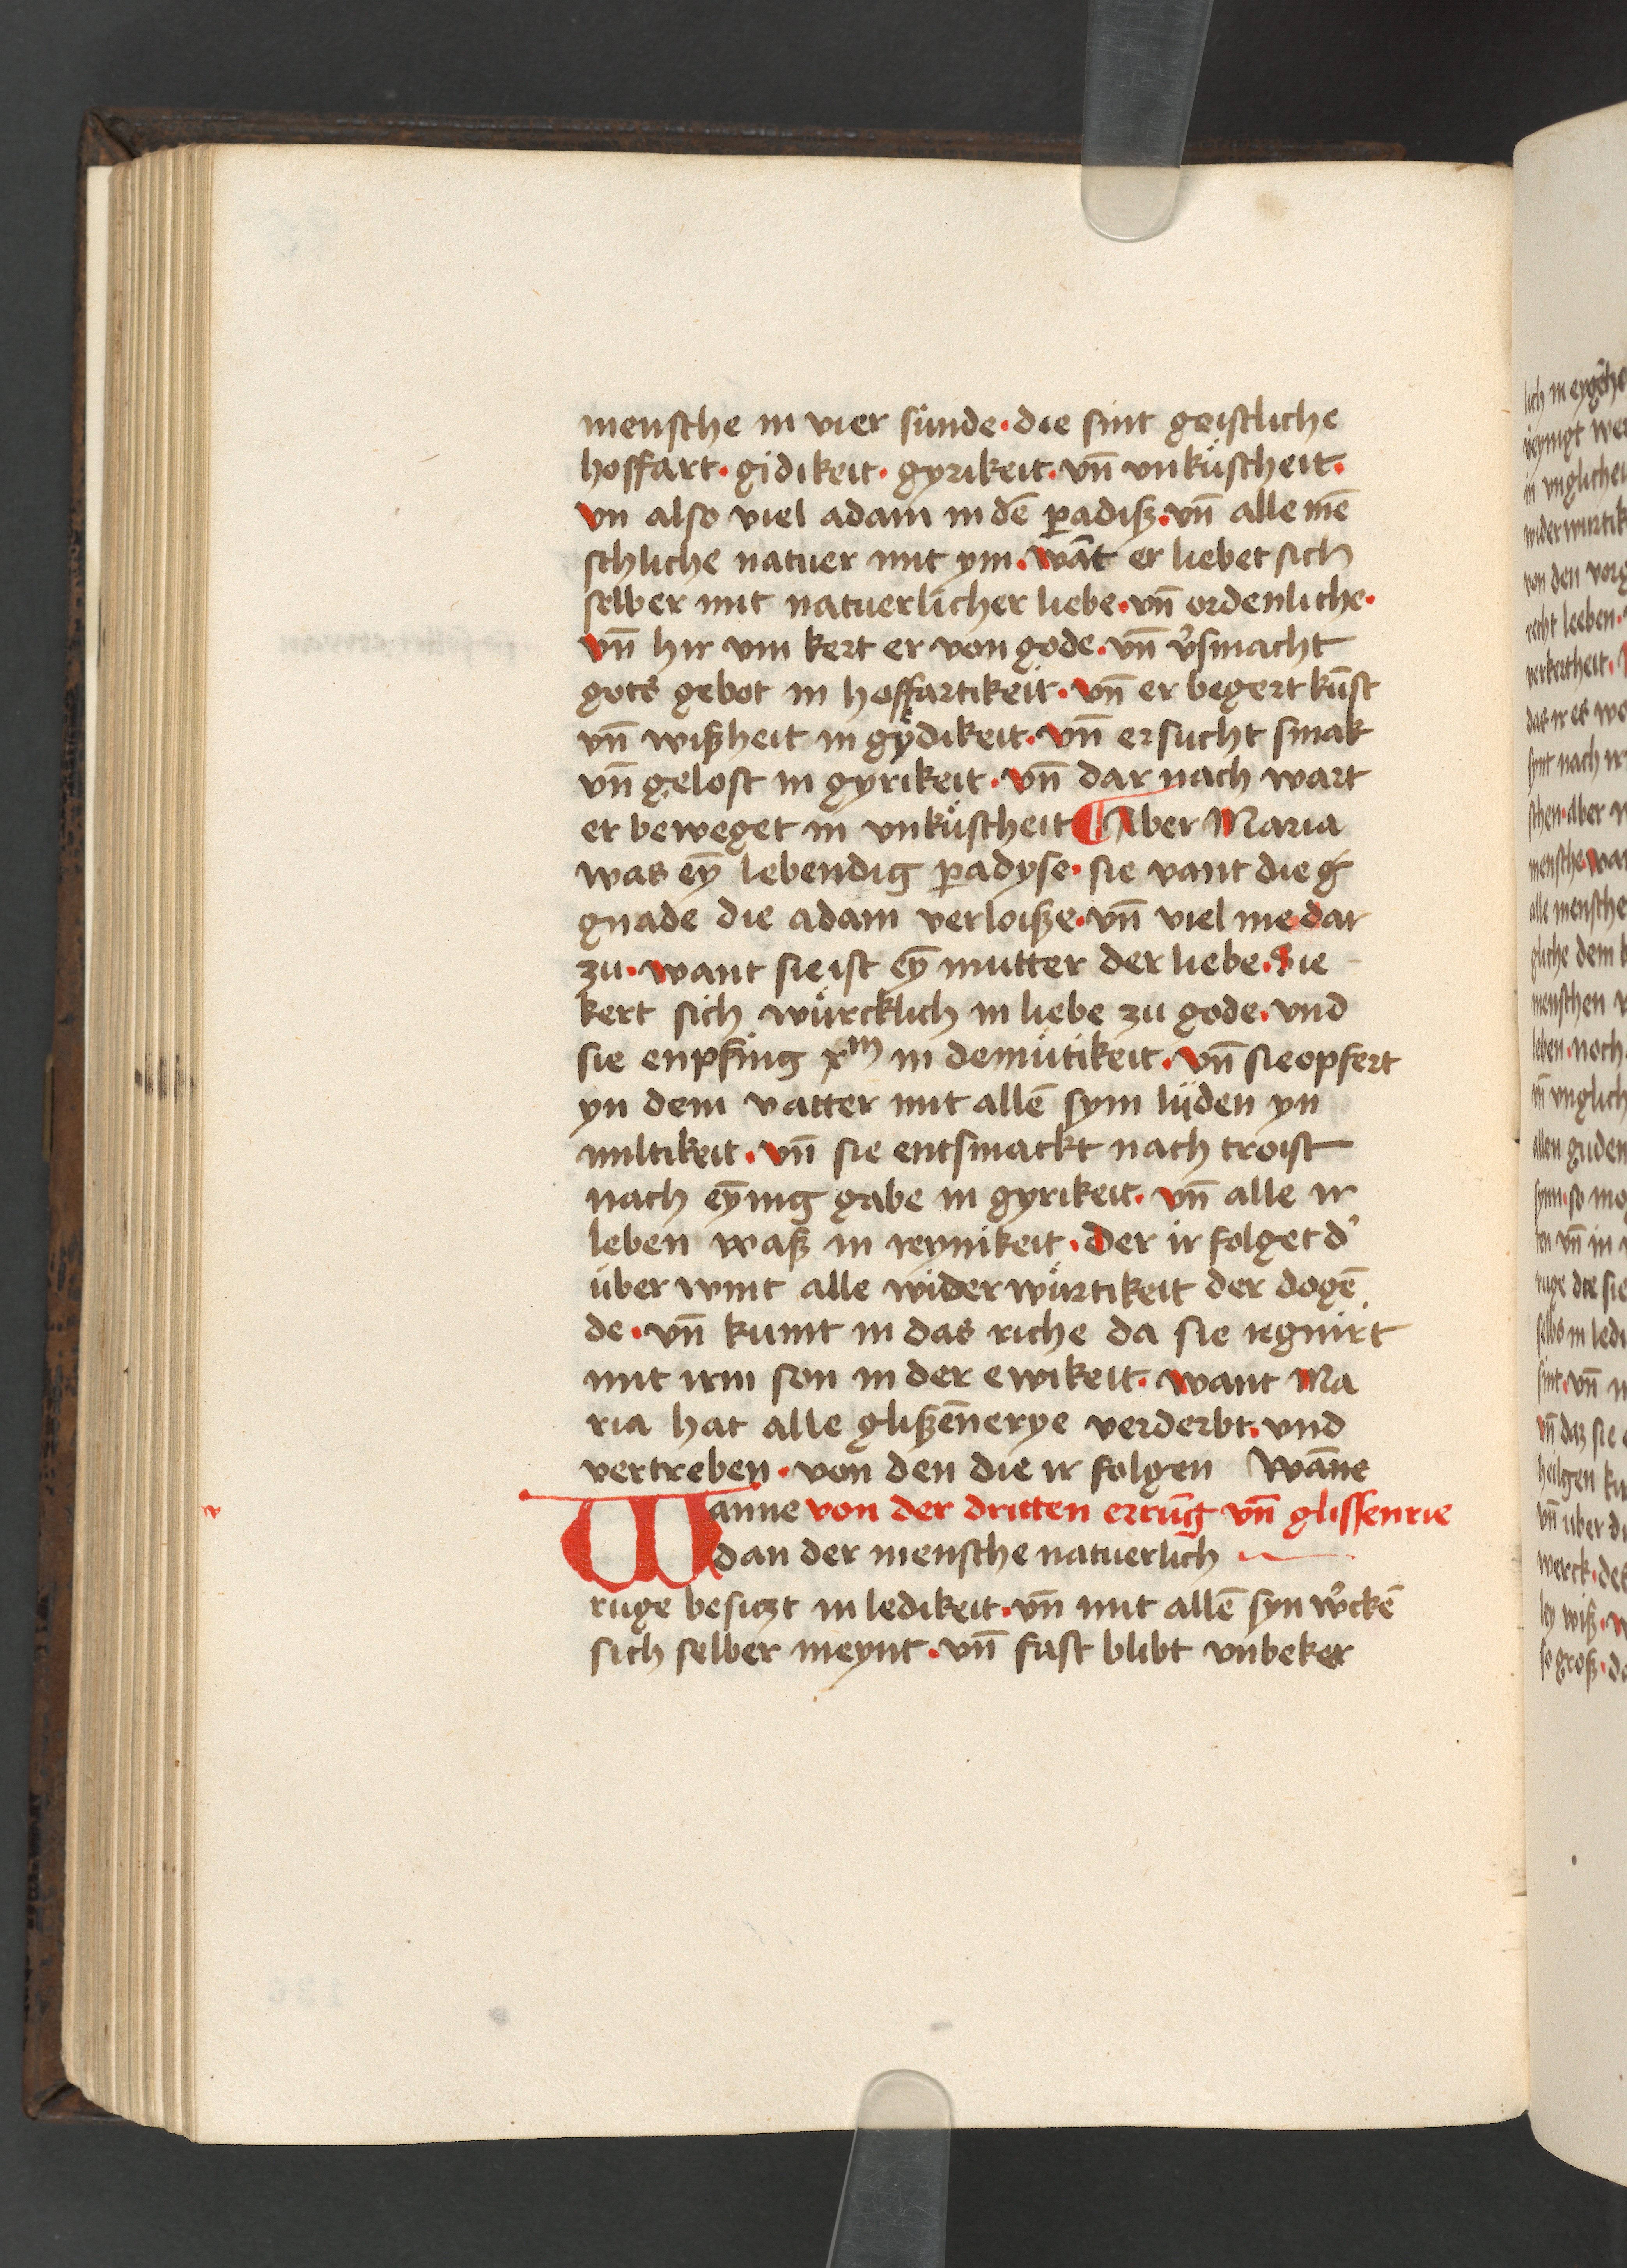 mensche in vier sünde · die sint geistliche
hoffart · gidikeit · gyrikeit · vn̄ vnküscheit ·
vn also viel adam in dē ꝑadiß · vn̄ alle mē
schliche natuer mit ym · wāt er liebet sich
selber mit natuerlicher liebe · vn̄ ordenliche ·
vn̄ hir vm kert er von gode · vn̄ v̓smacht
gots gebot in hoffartikeit · vn̄ er begert kūst
vn̄ wißheit in gydikeit · vn̄ er sucht smak
vn̄ gelost in gyrikeit · vn̄ dar nach wart
er beweget in vnküscheit ¶ Aber Maria
was eȳ lebendig ꝑadyse · sie vant die g
gnade die adam verloiße · vn̄ viel me dar
zu · want sie ist eȳ mutter der liebe · Sie
kert sich würcklich in liebe zu gode · vnd
sie enpfing xm in demütikeit · vn̄ sie opfert
yn dem vatter mit allē sym lyden yn
miltikeit · vn̄ sie entsmackt nach troist
nach eȳnig gabe in gyrikeit · vn̄ alle ir
leben waß in reynikeit · Der ir folget d̓
über wint alle wider würtikeit der dogē
de · vn̄ kumt in das riche da sie regnirt
mit irm son in der ewikeit · want Ma
ria hat alle glißēnerye verderbt · vnd
vertreben · von den die ir folgen Wāne
Wanne von der dritten errūg vn̄ glissenrie
dan der mensche natuerlich
ruge besiczt in ledikeit · vn̄ mit allē syn w̓ckē
sich selber meynt · vn̄ fast blibt vnbeker